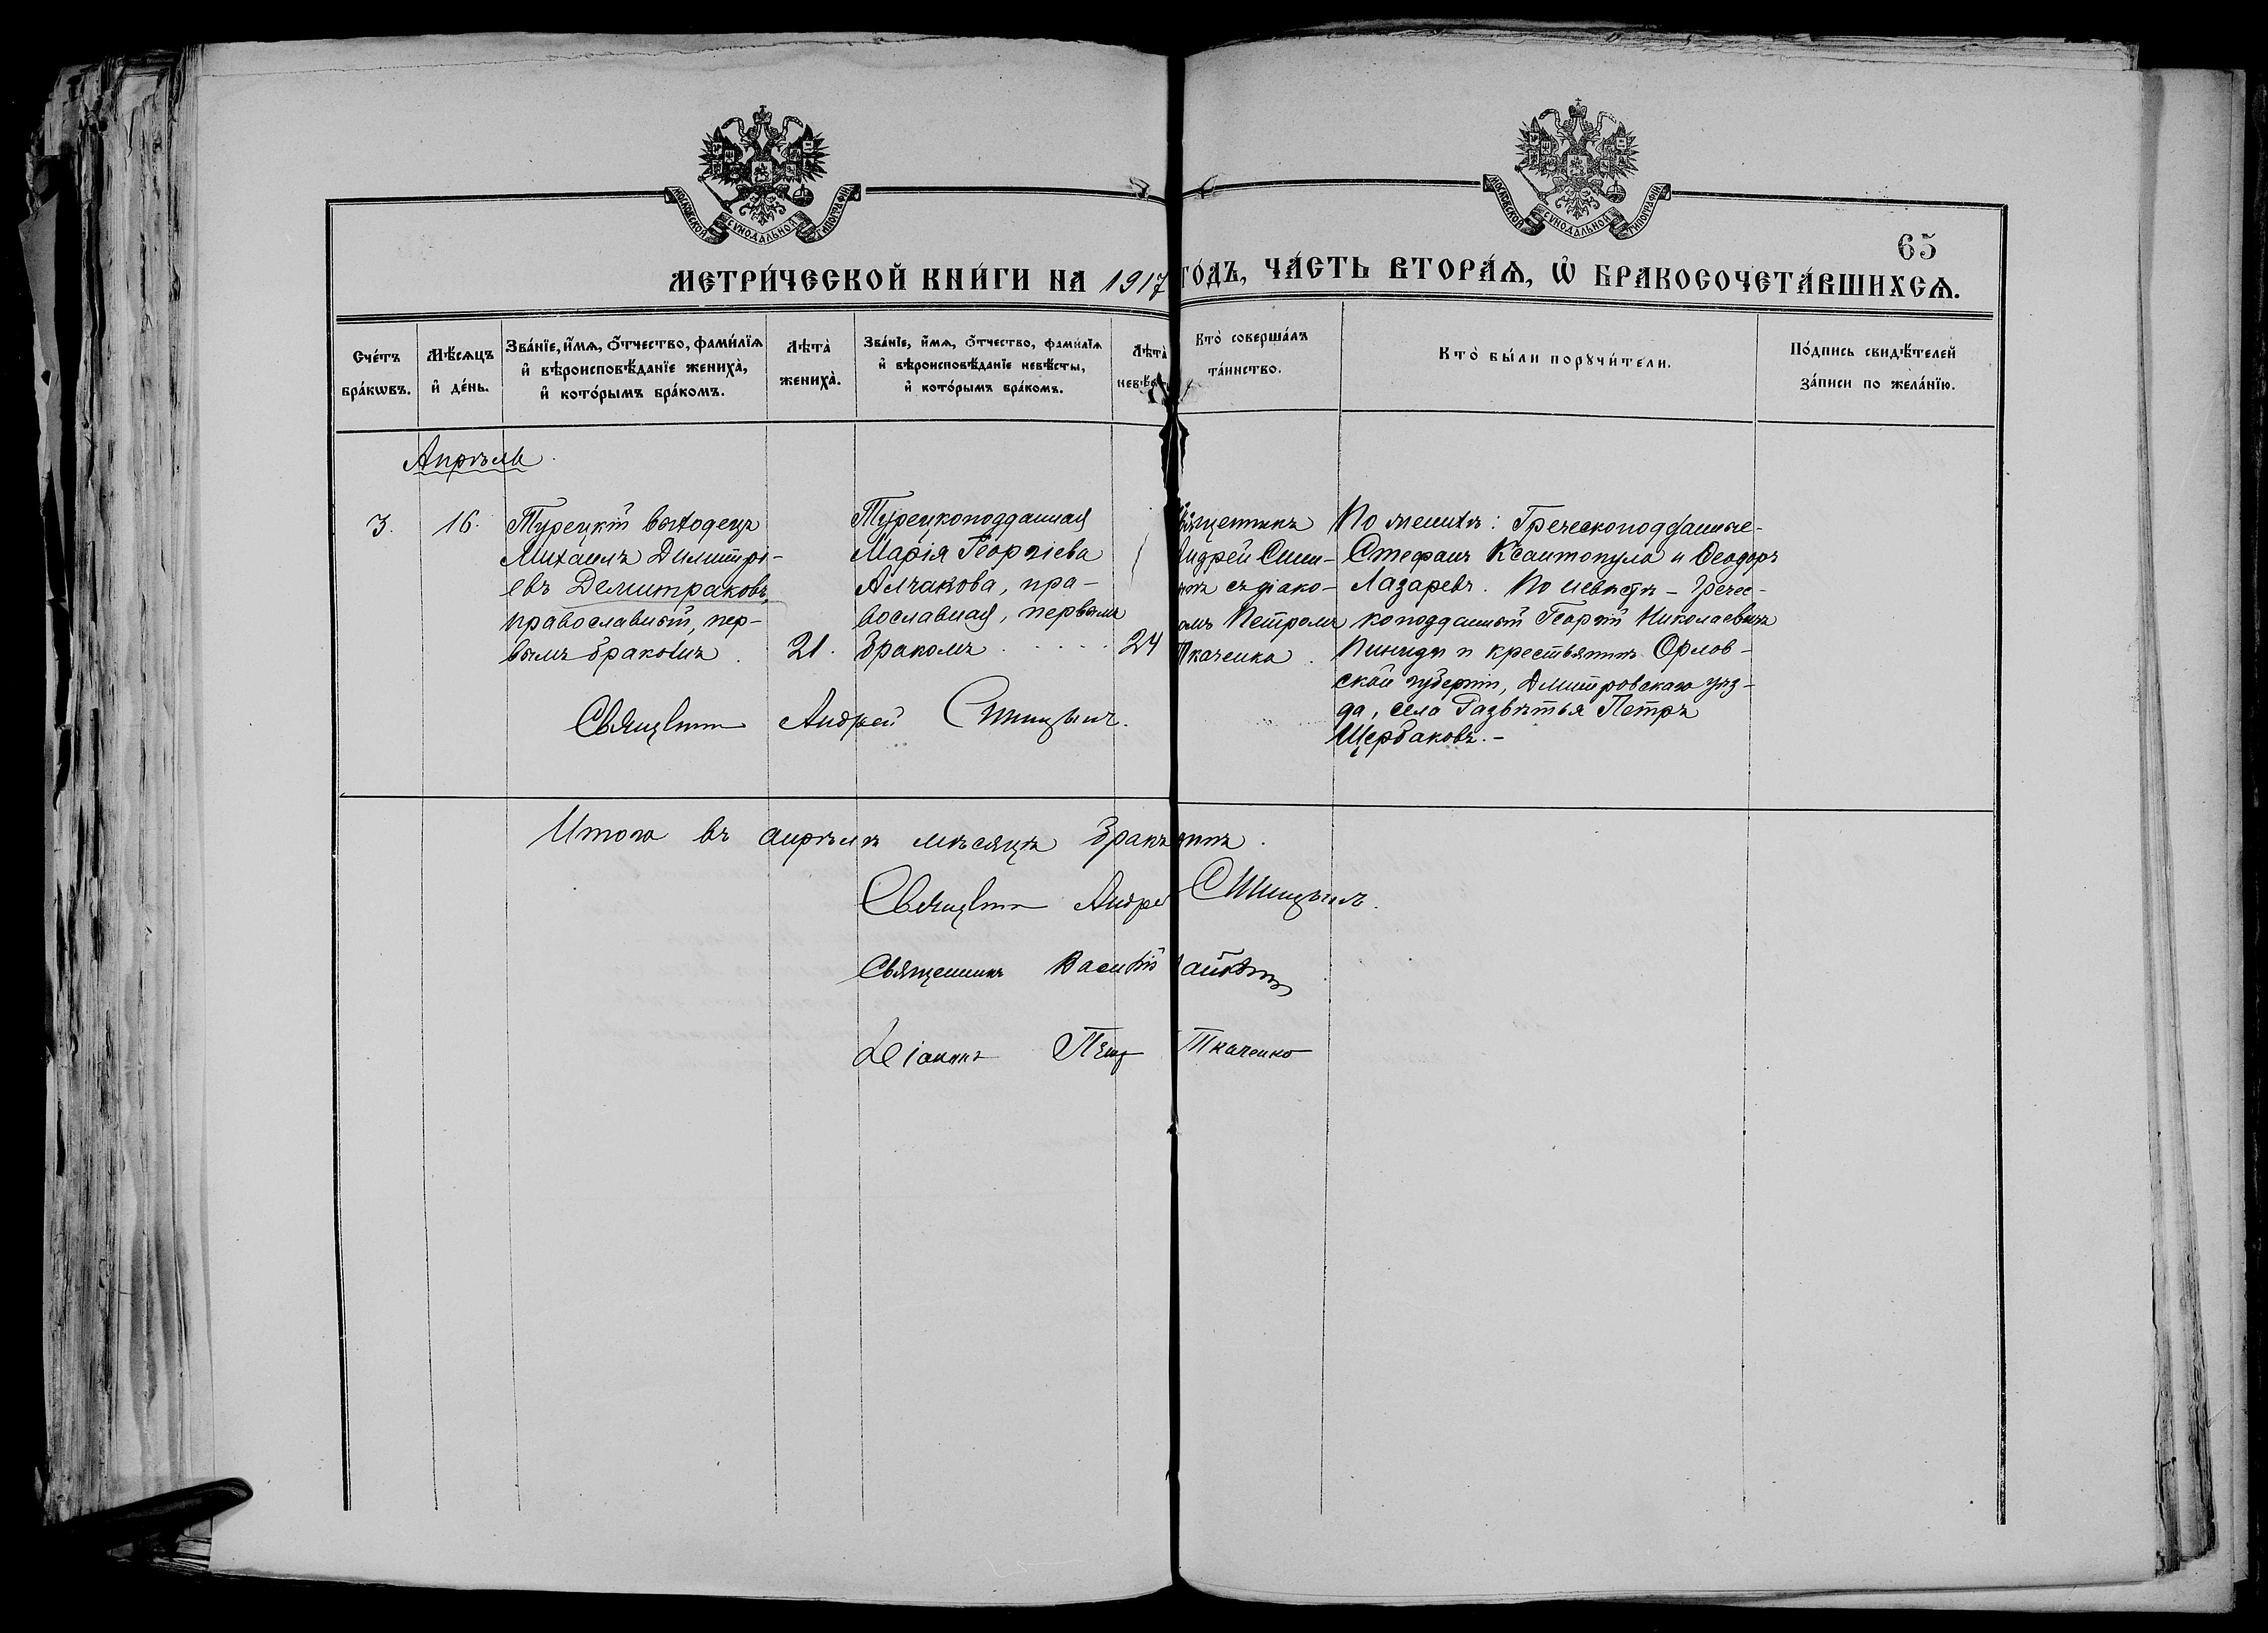 МОСКОВСКОЙ СѴНОДАЛЬНОЙ ТИПОГРАФІИ
МОСКОВСКОЙ СѴНОДАЛЬНОЙ ТИПОГРАФІИ
65
МЕТРИ́ЧЕСКОЙ КНИ́ГИ НА 1917 ГО́ДЪ, ЧА́СТЬ ВТОРА́Ѧ, Ѽ БРАКОСОЧЕТА́ВШИХСѦ.
Сче́тъ
бра́кѡвъ.
Мѣ́сѧцъ
и҆ де́нь.
Зва́нїе, и҆́мѧ, ѻ҆́тчество, фами́лїѧ
и҆ вѣроисповѣ́данїе женихà,
и҆ кото́рымъ бра́комъ.
Лѣтà
женихà.
Зва́нїе, и҆́мѧ, ѻ҆́тчество, фами́лїѧ
и҆ вѣроисповѣ́данїе невѣ́сты,
и҆ кото́рымъ бра́комъ.
Лѣтà
невѣ́с
Кто̀ соверша́лъ
та́инство.
Кто̀ бы́ли порꙋчи́тели.
По́дпись свидѣ́телей
за́писи по жела́нїю.
Апрѣль.
3.
16.
Турецкій выходецъ
Михаилъ Димитрі-
евъ Демитраковъ,
православный, пер-
вымъ бракомъ.
21.
Турецкоподданная
Марія Георгіева
Алчакова, пра-
вославная, первымъ
бракомъ . . . . .
24
Священникъ
Андрей Сини-
нъ съ діако-
омъ Петромъ
Ткаченко.
По женихѣ: Греческоподданные
Стефанъ Ксантопуло и Ѳеодоръ
Лазаревъ. По невѣстѣ - Гречес-
коподданный Георгій Николаевичъ
Пиниди и крестьянинъ Орлов-
ской губерніи, Дмитровскаго уѣз-
да, села Развѣтья Петръ
Щербаковъ. -
Священникъ Андрей Синицынъ.
Итого въ апрѣлѣ мѣсяцѣ бракъ одинъ.
Священникъ Андрей Синицынъ.
Священникъ Василій
Діаконъ Петръ Ткаченко